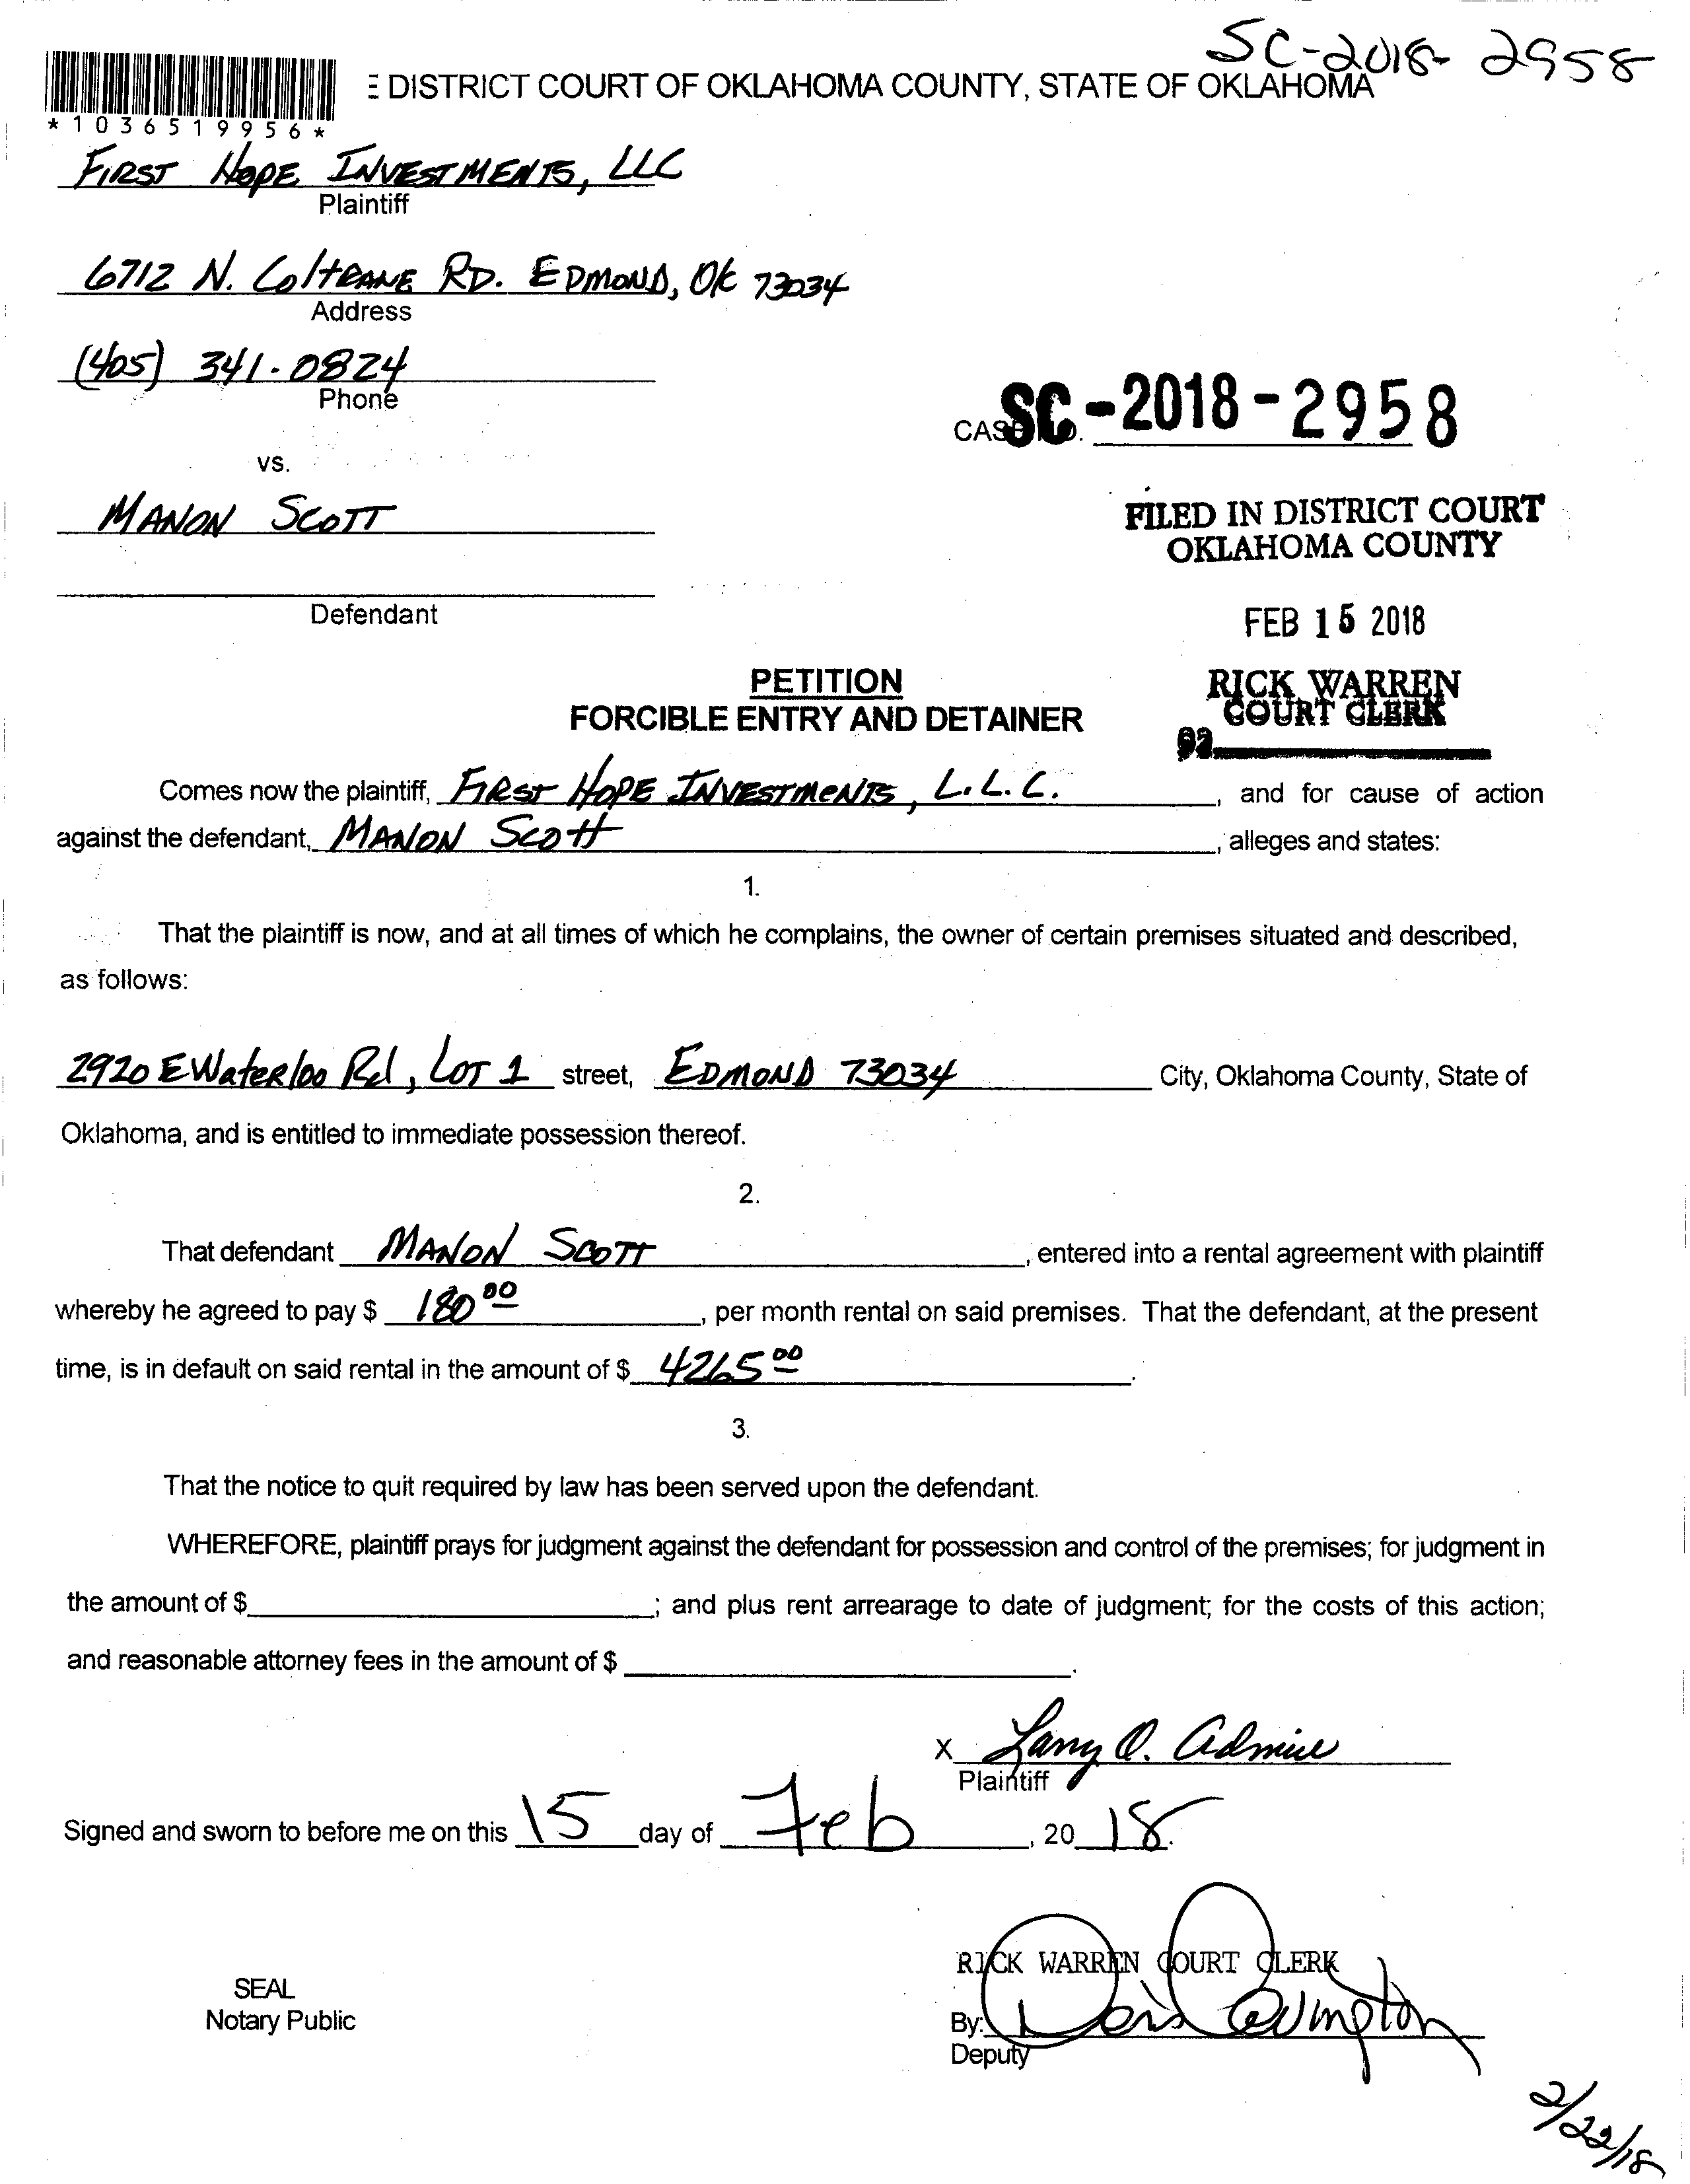 SC-2018-2958
DISTRICT COURT OF OKLAHOMA COUNTY, STATE OF OKLAHOMA
*1036519956*
FIRST HOPE INVESTMENTS, LLC
Plaintiff
6712 N. COLTRANE RD. EDMOND, OK 73034
Address
(405) 341-0824
Phone
SC-2018-2958
vs.
MANON SCOTT
FILED IN DISTRICT COURT
OKLAHOMA COUNTY
Defendant
FEB 15 2018
PETITION
RICK WARREN
COURT CLERK
FORCIBLE ENTRY AND DETAINER
Comes now the plaintiff, FIRST HOPE INVESTMENTS, L.L.C., and for cause of action
against the defendant, MANON SCOTT, alleges and states:
1.
That the plaintiff is now, and at all times of which he complains, the owner of certain premises situated and described,
as follows:
2920 E Waterloo Rd, LOT 1 street, EDMOND 73034 City, Oklahoma County, State of
Oklahoma, and is entitled to immediate possession thereof.
2.
That defendant MANON SCOTT, entered into a rental agreement with plaintiff
whereby he agreed to pay $ 180 00, per month rental on said premises. That the defendant, at the present
time, is in default on said rental in the amount of $ 4265 00.
3.
That the notice to quit required by law has been served upon the defendant.
WHEREFORE, plaintiff prays for judgment against the defendant for possession and control of the premises; for judgment in
the amount of $ ; and plus rent arrearage to date of judgment; for the costs of this action;
and reasonable attorney fees in the amount of $ .
X Larry O. Admire
Plaintiff
Signed and sworn to before me on this 15 day of Feb, 20 18.
RICK WARREN COURT CLERK
SEAL
Notary Public
By: Doris Covington
Deputy
2/22/18